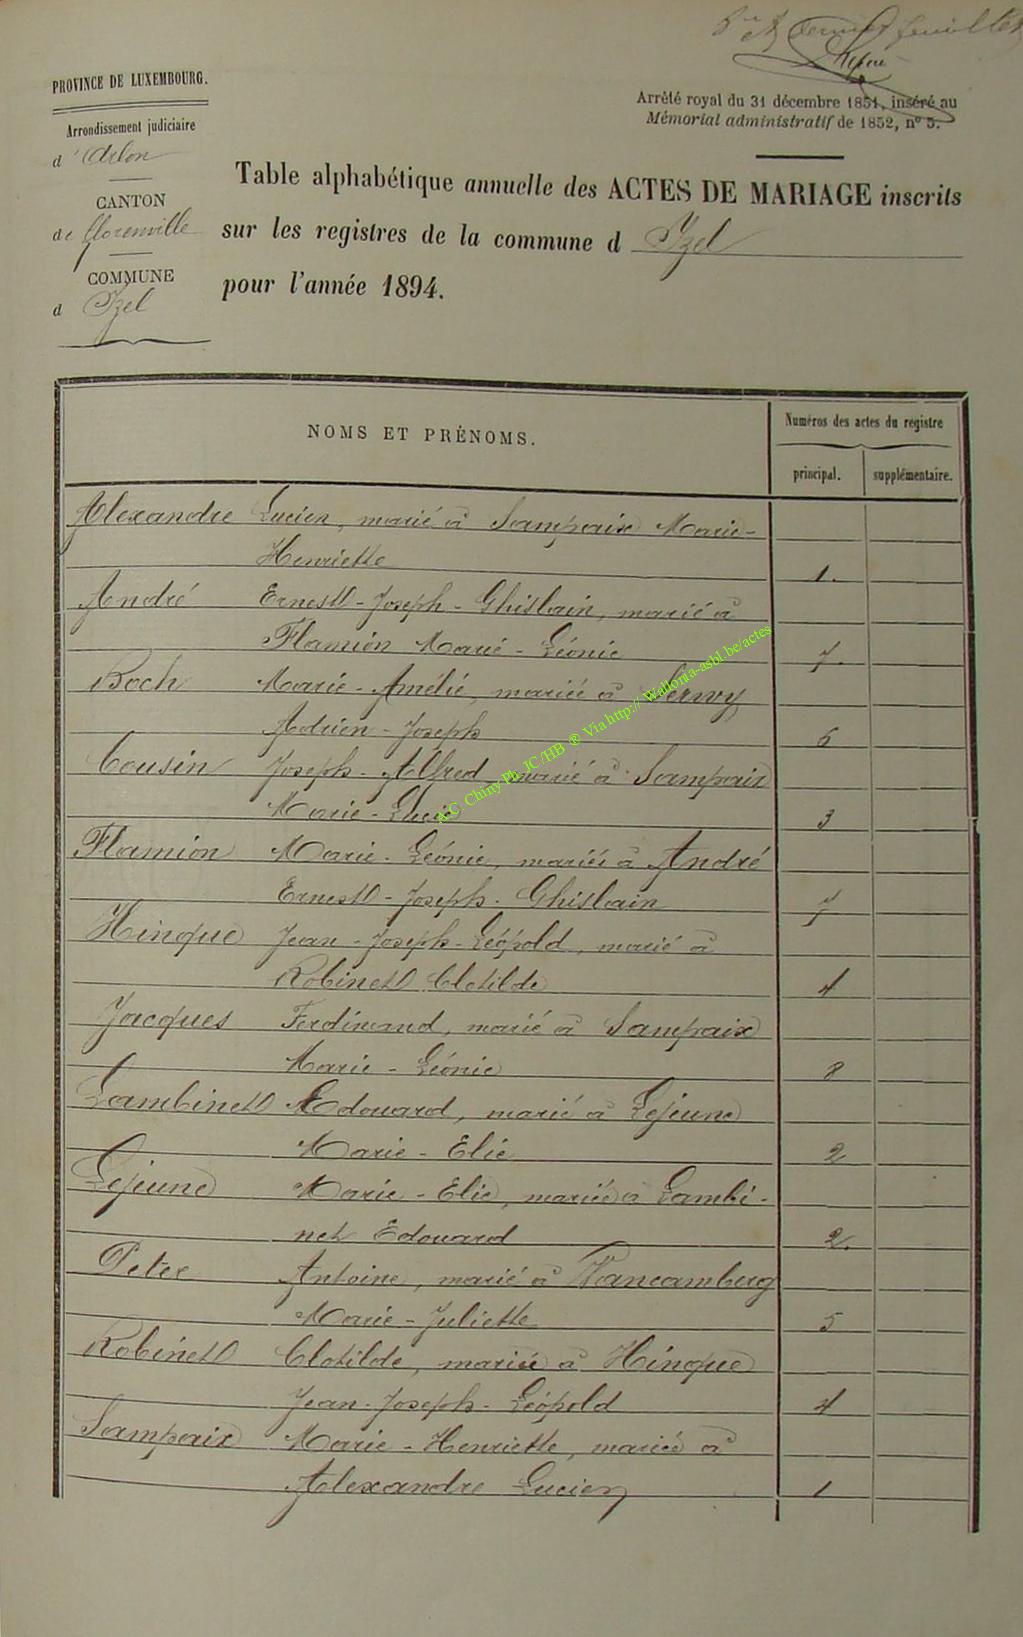 dernier feuillet
PROVINCE DE LUXEMBOURG.
Arrêté royal du 31 décembre 1851, inséré au
Mémorial administratif de 1852, n° 5.
Arrondissement judiciaire
d'Arlon
CANTON
de Florenville
COMMUNE
d Izel
Table alphabétique annuelle des ACTES DE MARIAGE inscrits
sur les registres de la commune d Izel
pour l'année 1894.
NOMS ET PRÉNOMS.
Numéros des actes du registre
principal. supplémentaire.
Alexandre Lucien, marié à Sampaix Marie-
Henriette 1.
André Ernest-Joseph-Ghislain, marié à
Flamion Marie-Léonie 7.
Boch Marie-Amélie, mariée à Servy
Adrien-Joseph 6
Cousin Joseph-Alfred, marié à Sampaix
Marie-Lucie 3
Flamion Marie-Léonie, mariée à André
Ernest-Joseph-Ghislain 7
Hinque Jean-Joseph-Léopold, marié à
Robinet Clotilde 4
Jacques Ferdinand, marié à Sampaix
Marie-Léonie 8
Lambinet Edouard, marié à Lejeune
Marie-Elie 2
Lejeune Marie-Elie, mariée à Lambi-
net Edouard 2.
Peter Antoine, marié à Vancamberg
Marie-Juliette 5
Robinet Clotilde, mariée à Hinque
Jean-Joseph-Léopold 4
Sampaix Marie-Henriette, mariée à
Alexandre Lucien 1
A.C. Chiny Ph. JC/HB ® Via http:// Wallonia-asbl.be/actes